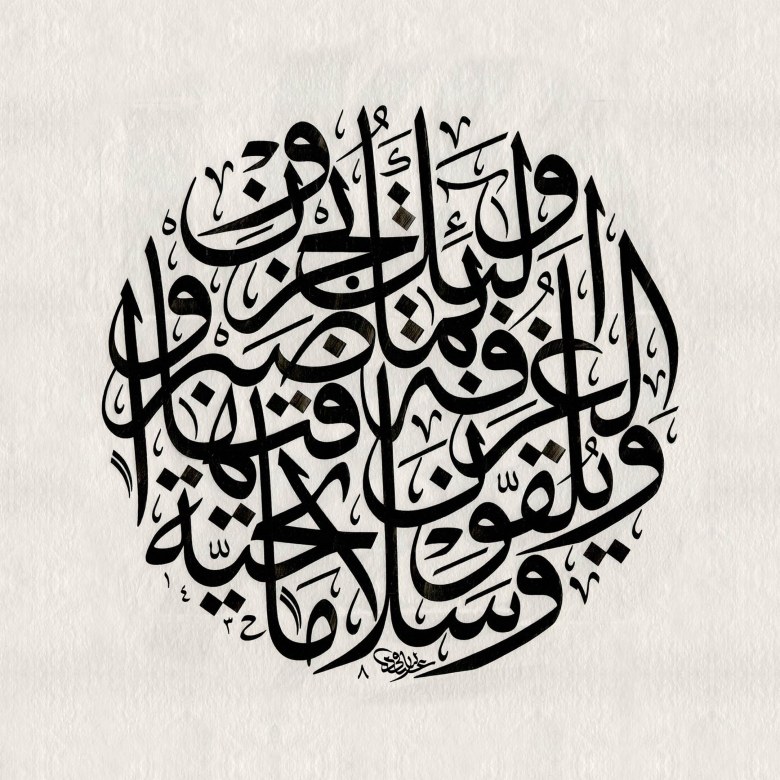 أُولَئِكَ يُجْزَوْنَ
الْغُرْفَةَ بِمَا صَبَرُوا
وَيُلَقَّوْنَ فِيهَا
تَحِيَّةً وَسَلَامًا
١٤٣٨